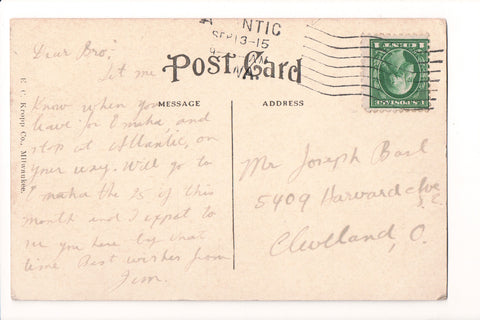 NTIC
SEP 13-15
POST CARD
MESSAGE
ADDRESS
Dear Bro;
Let me
Know when you
leave for Omaha, and
stop at Atlantic, on
your way. Will go to
Omaha the 25 of this
month and I expect to
see you here by that
time Best wishes from
Jim.
Mr Joseph
5409 Harvard Ave
S.E.
Cleveland, O.
E. C. Kropp Co., Milwaukee.